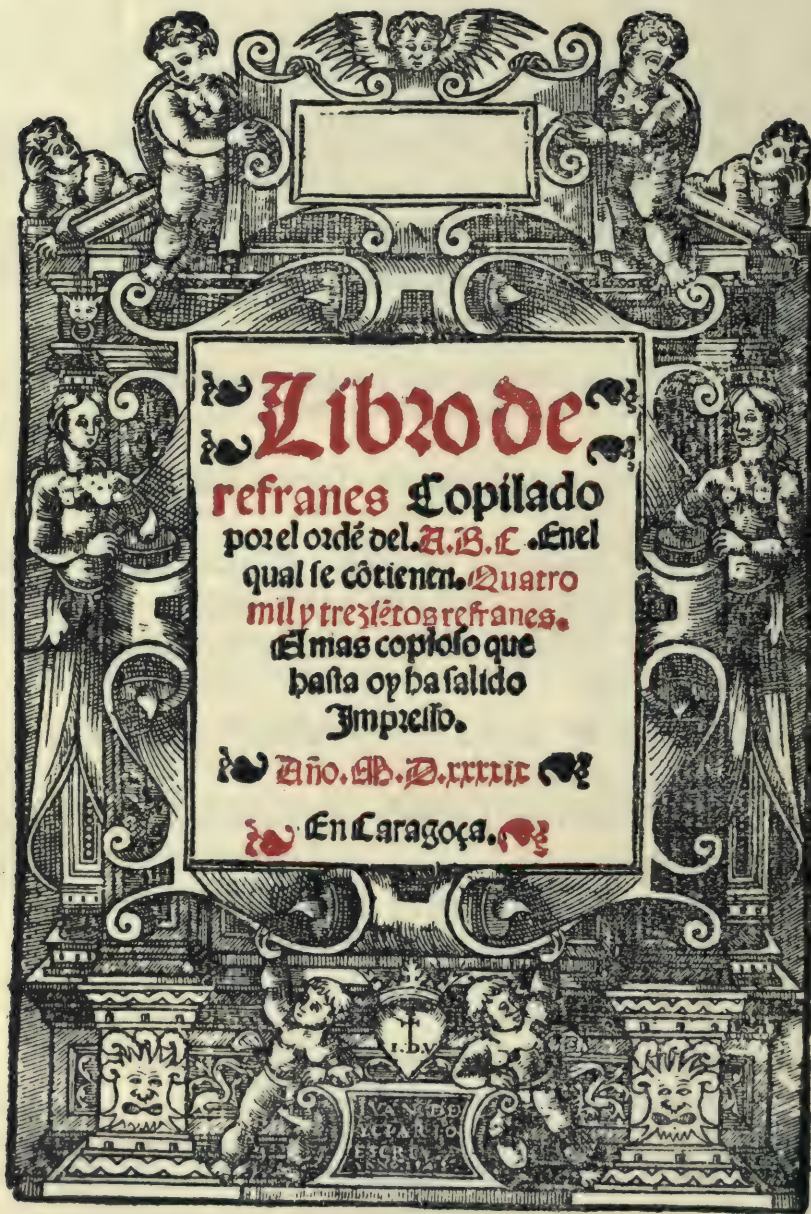 Libro de
refranes Copilado
por el ordē del. A.B.C. Enel
qual se cōtienen. Quatro
mil y trezlētos refranes.
El mas copioso que
hasta oy ha salido
Impresso.
Año. M.D.xxxxix
En Caragoça.
I.D.V
IVAN DE
YCIAR LO